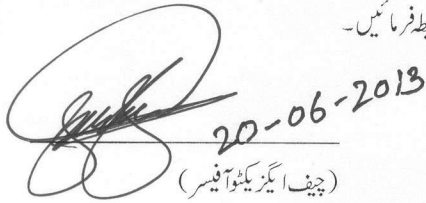 بطہ فرمائیں۔
20-06-2013
(چیف ایگزیکٹو آفیسر)